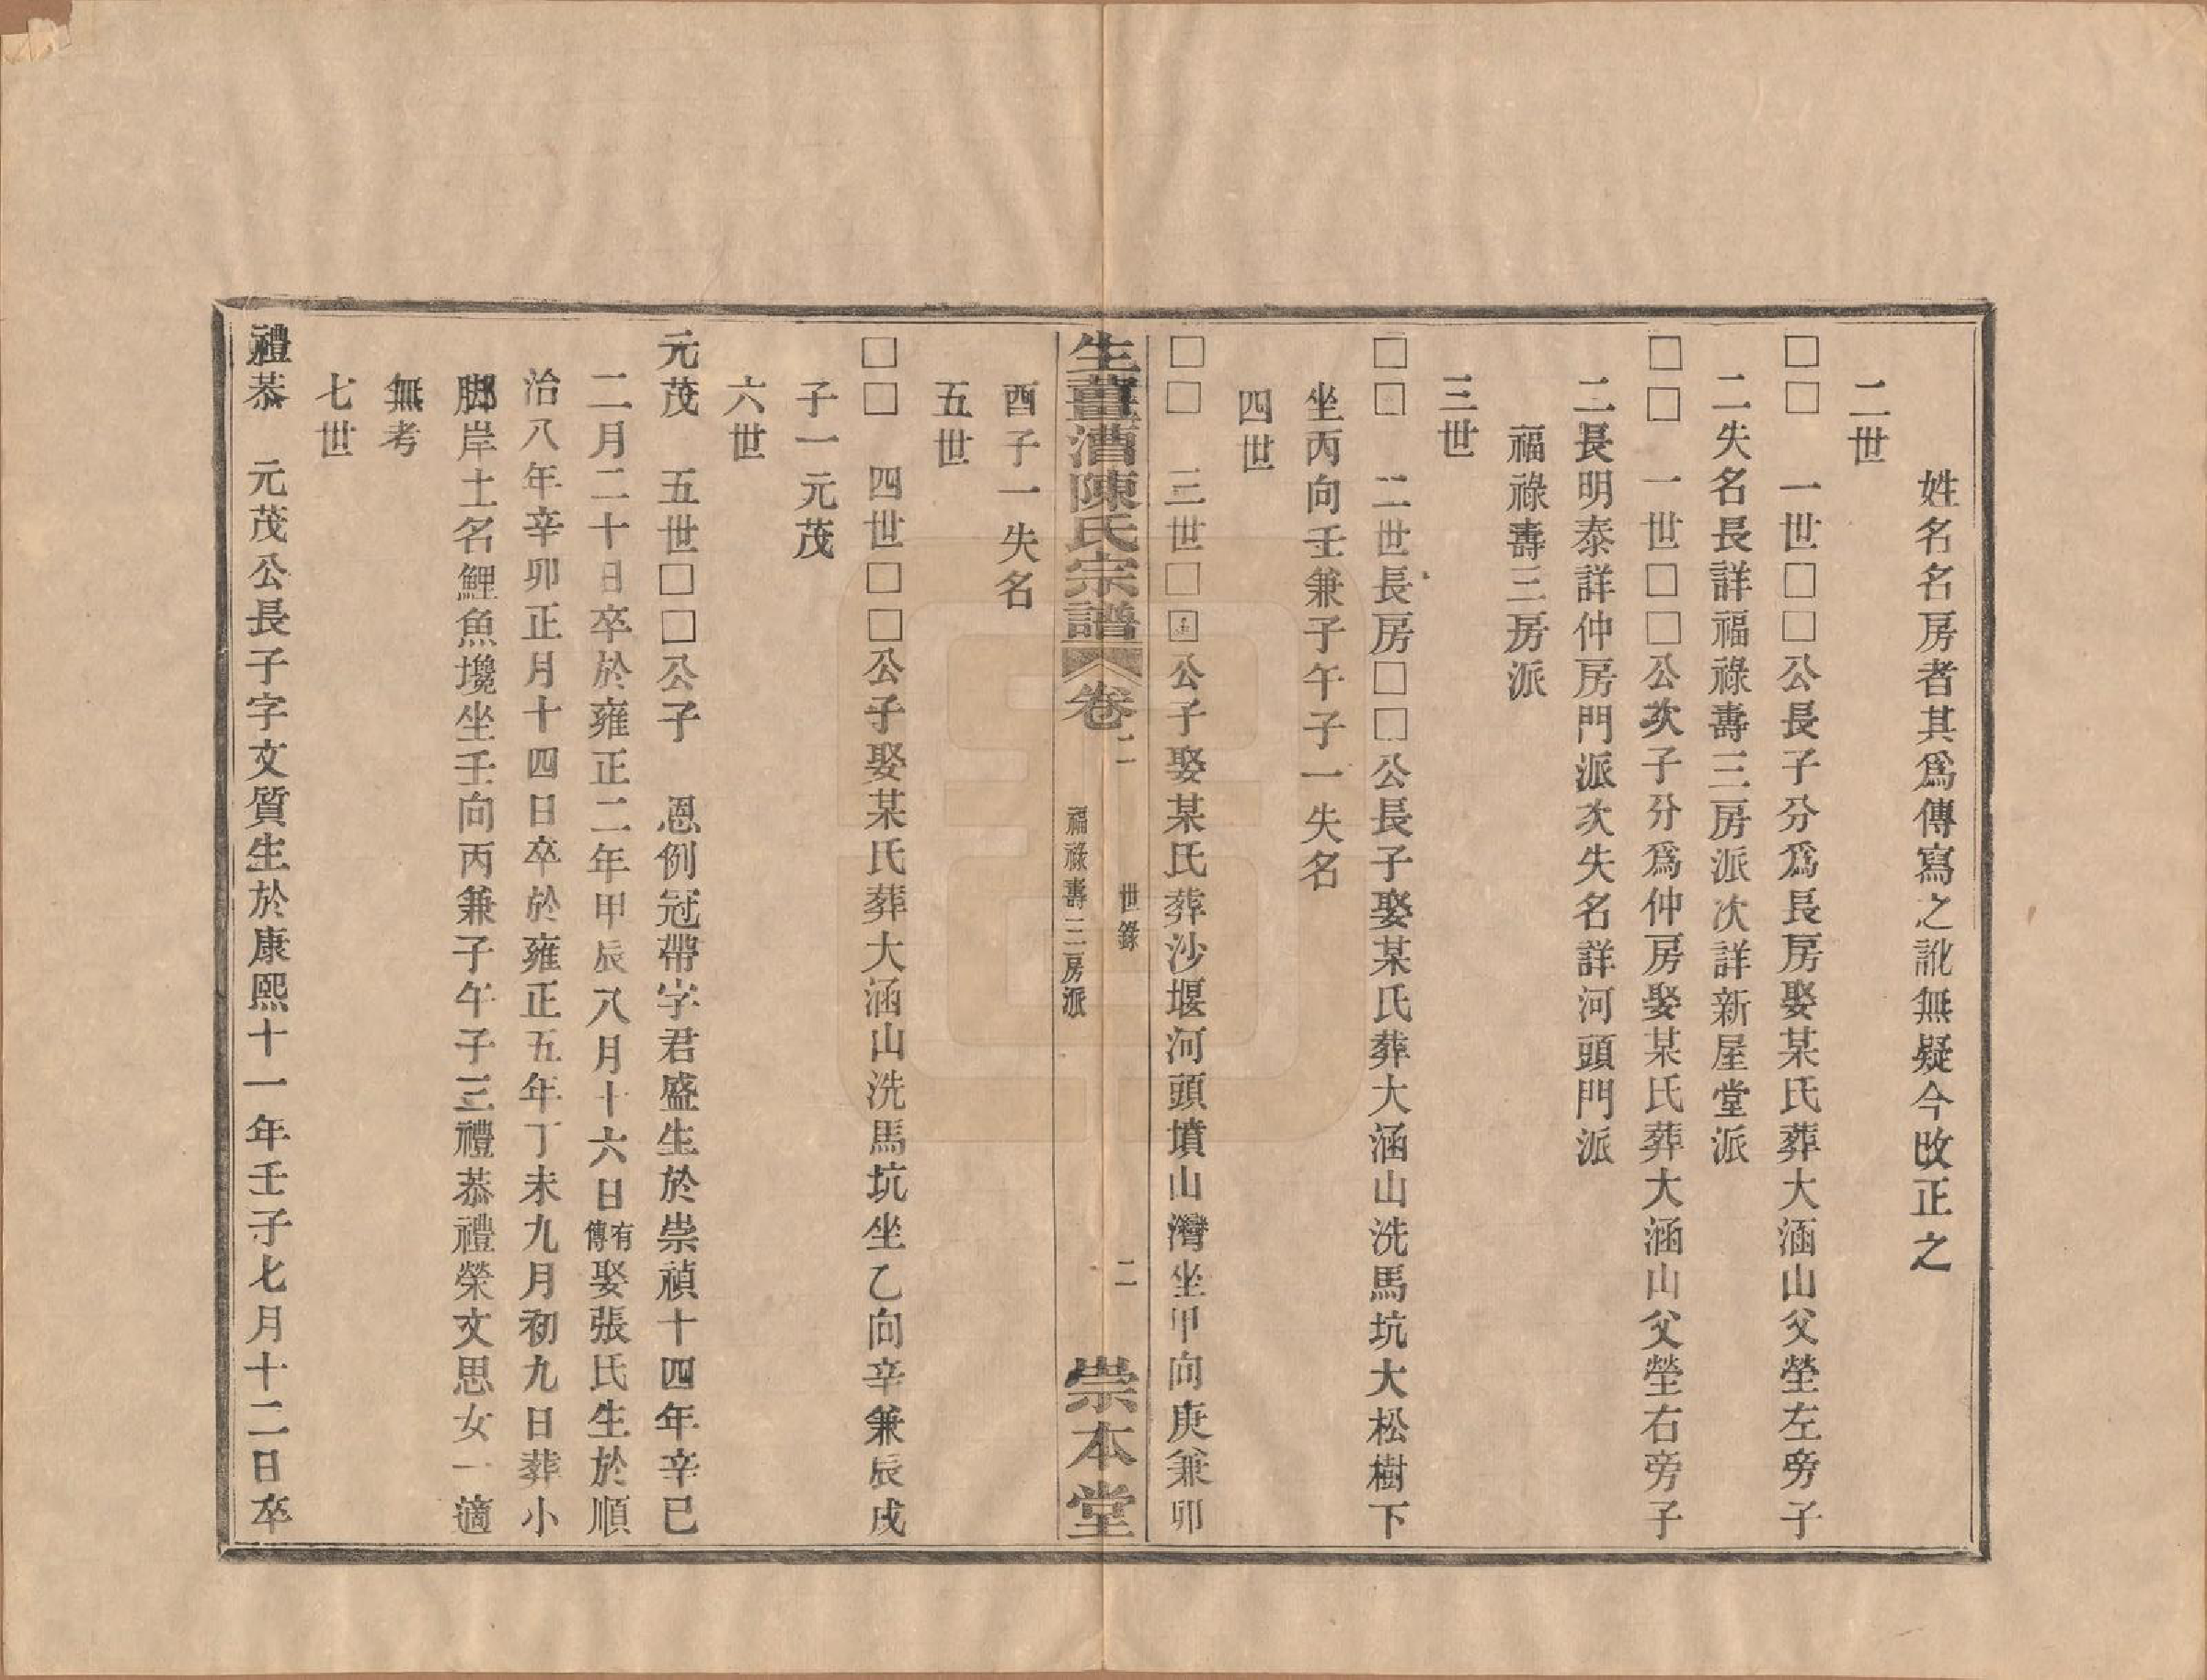 姓名名房者其爲傳寫之訛無疑今改正之
二世
□□　一世□□公長子分爲長房娶某氏葬大涵山父塋左旁子
二失名長詳福祿壽三房派次詳新屋堂派
□□　一世□□公次子分爲仲房娶某氏葬大涵山父塋右旁子
二長明泰詳仲房門派次失名詳河頭門派
福祿壽三房派
三世
□□　二世長房□□公長子娶某氏葬大涵山洗馬坑大松樹下
坐丙向壬兼子午子一失名
四世
□□　三世□□公子娶某氏葬沙堰河頭墳山灣坐甲向庚兼卯
生薑漕陳氏宗譜　卷二　世錄　福祿壽三房派　二　崇本堂
酉子一失名
五世
□□　四世□□公子娶某氏葬大涵山洗馬坑坐乙向辛兼辰戌
子一元茂
六世
元茂　五世□□公子　恩例冠帶字君盛生於崇禎十四年辛巳
二月二十日卒於雍正二年甲辰八月十六日有傳娶張氏生於順
治八年辛卯正月十四日卒於雍正五年丁未九月初九日葬小
腳岸土名鯉魚壋坐壬向丙兼子午子三禮恭禮榮文思女一適
無考
七世
禮恭　元茂公長子字文質生於康熙十一年壬子七月十二日卒